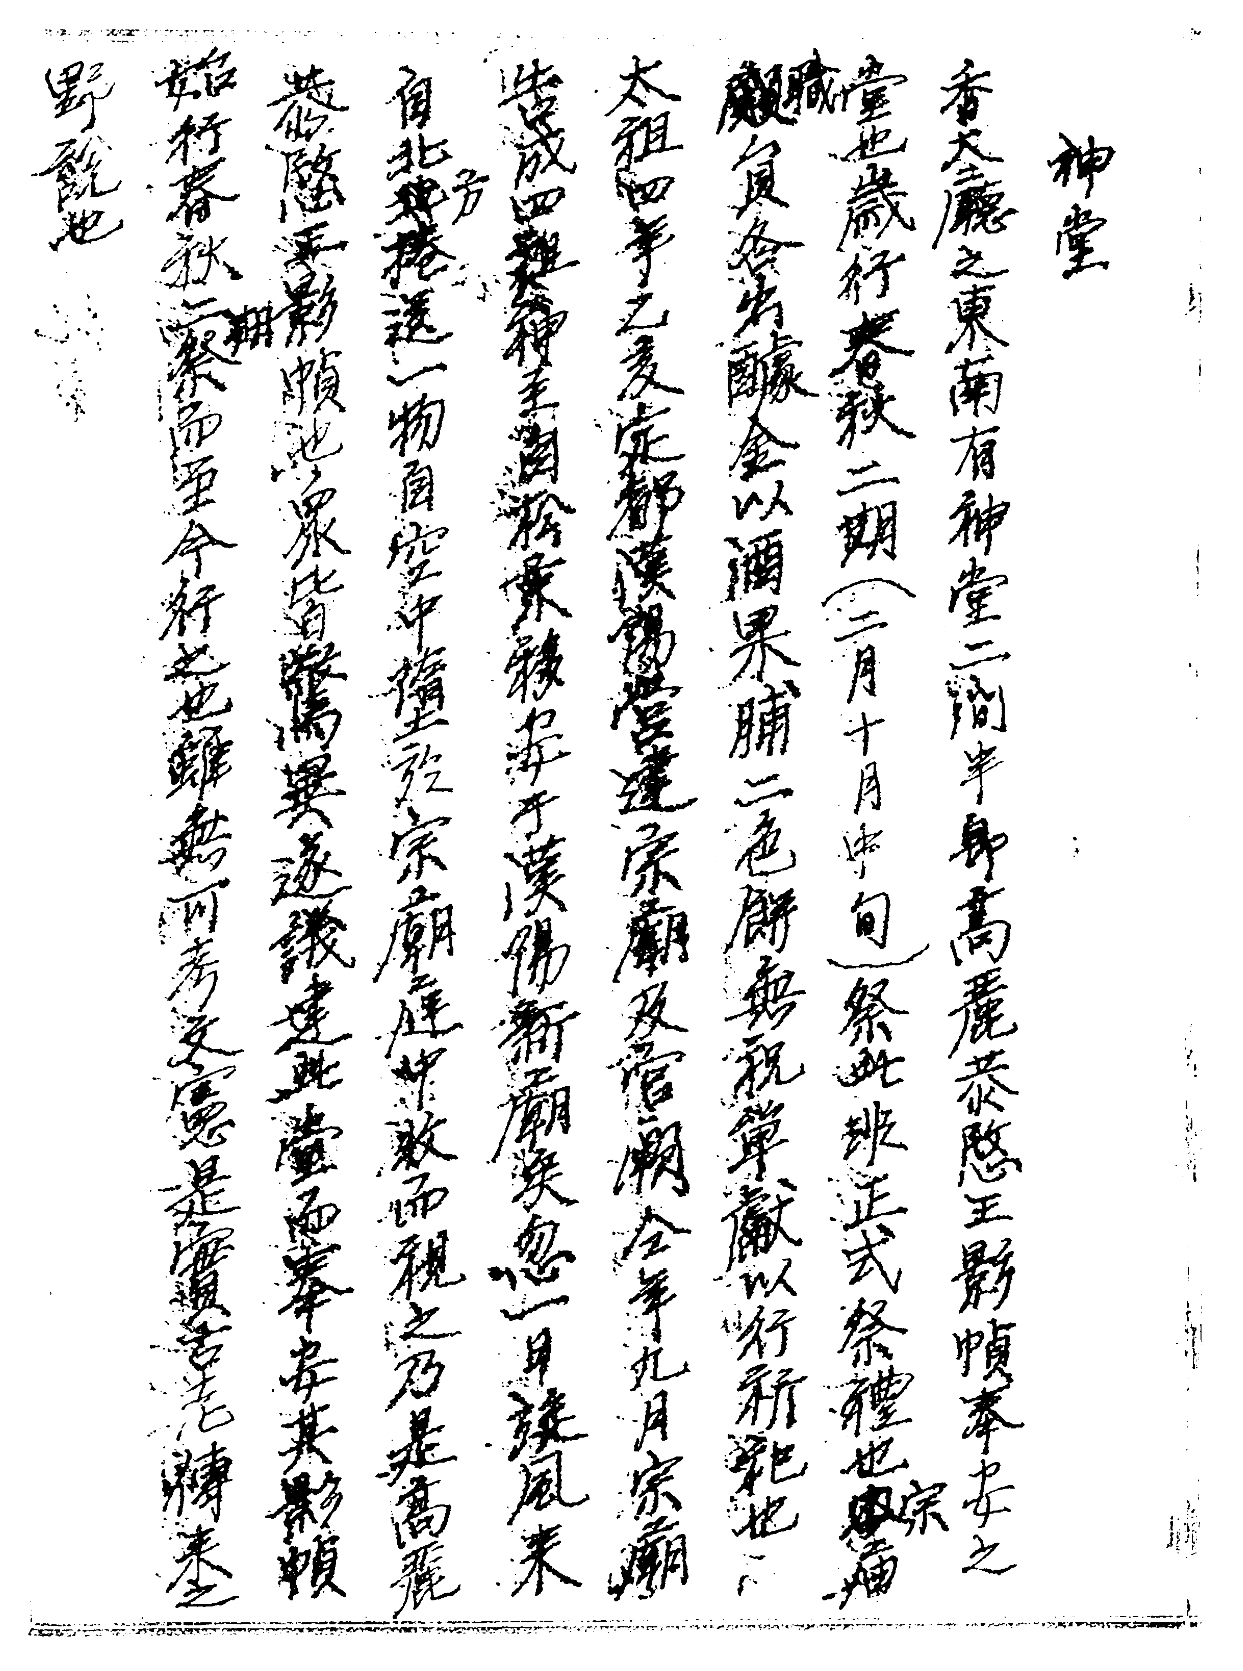 神堂
香大廳之東南有神堂二間半卽高麗恭愍王影幀奉安之
堂也歲行春秋二期(二月十月中旬)祭此非正式祭禮也宗廟
職員各出醵金以酒果脯二色餠無祝單獻以行祈祀也
太祖四年之夏定都漢陽營建宗廟及官廟仝年九月宗廟
告成四祖神主自松京移安于漢陽新廟矣忽一日旋風來
自北方捲送一物自空中墮於宗廟庭中收而視之乃是高麗
恭愍王影幀也衆皆驚異遂議建此堂而奉安其影幀
始行春秋二期祭而至今行之也雖無可考文憲是實古老傳來之
野說也